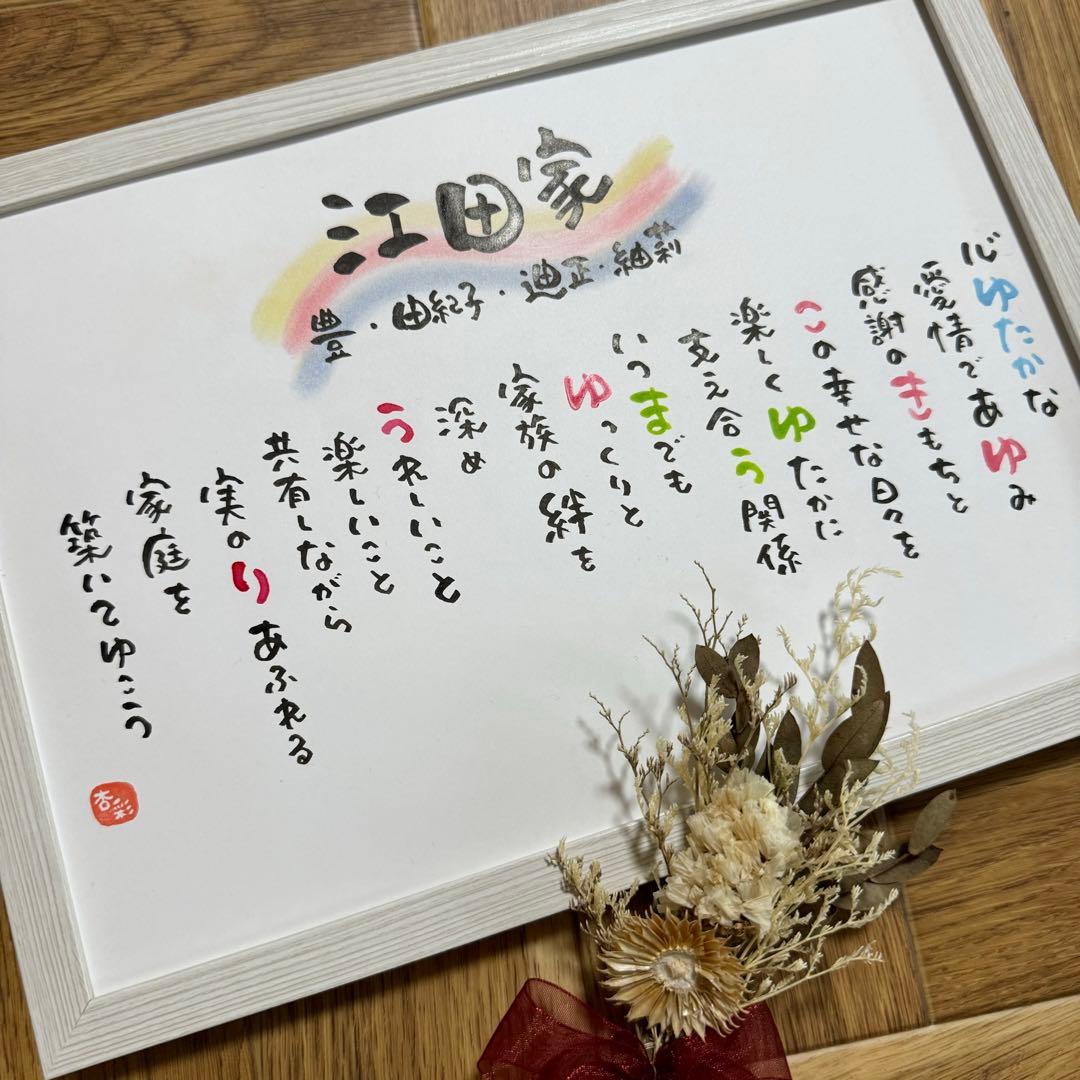 江田家
豊・由紀子・迪正・紬莉
心ゆたかな
愛情であゆみ
感謝のきもちと
この幸せな日々を
楽しくゆたかに
支え合う関係
いつまでも
ゆっくりと
家族の絆を
深め
うれしいこと
楽しいこと
共有しながら
実のりあふれる
家庭を
築いてゆこう
杏彩